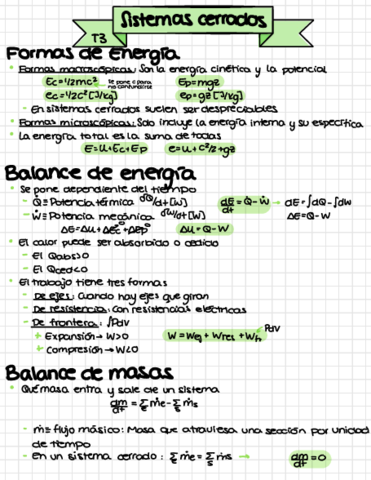 Sistemas cerrados
T3
Formas de Energía
Formas macroscópicas: Son la energía cinética y la potencial
Ec=1/2mc² se pone c para no confundirse Ep=mgz
ec=1/2c² [J/kg] ep=gz [J/kg]
- En sistemas cerrados suelen ser despreciables
Formas microscópicas: Solo incluye la energía interna y su específica
La energía total es la suma de todas
E=U+Ec+Ep e=u+c²/2+gz
Balance de energía
Se pone dependiente del tiempo
- Q̇≡Potencia térmica δQ/dt [W] dE/dt = Q̇-Ẇ → dE=∫dQ-∫dW
- Ẇ≡Potencia mecánica δW/dt [W] ΔE=Q-W
ΔE=ΔU+ΔEc+ΔEp ΔU=Q-W
El calor puede ser absorbido o cedido
- El Qabs>0
- El Qced<0
El trabajo tiene tres formas
- De ejes: Cuando hay ejes que giran
- De resistencia: Con resistencias eléctricas
- De frontera: ∫PdV
+ Expansión → W>0 W=Wej+Wres+Wfr PdV
+ Compresión → W<0
Balance de masas
Qué masa entra y sale de un sistema
dm/dt = Σe ṁe - Σs ṁs
- ṁ≡ flujo másico: Masa que atraviesa una sección por unidad
de tiempo
- En un sistema cerrado: Σe ṁe = Σs ṁs → dm/dt=0